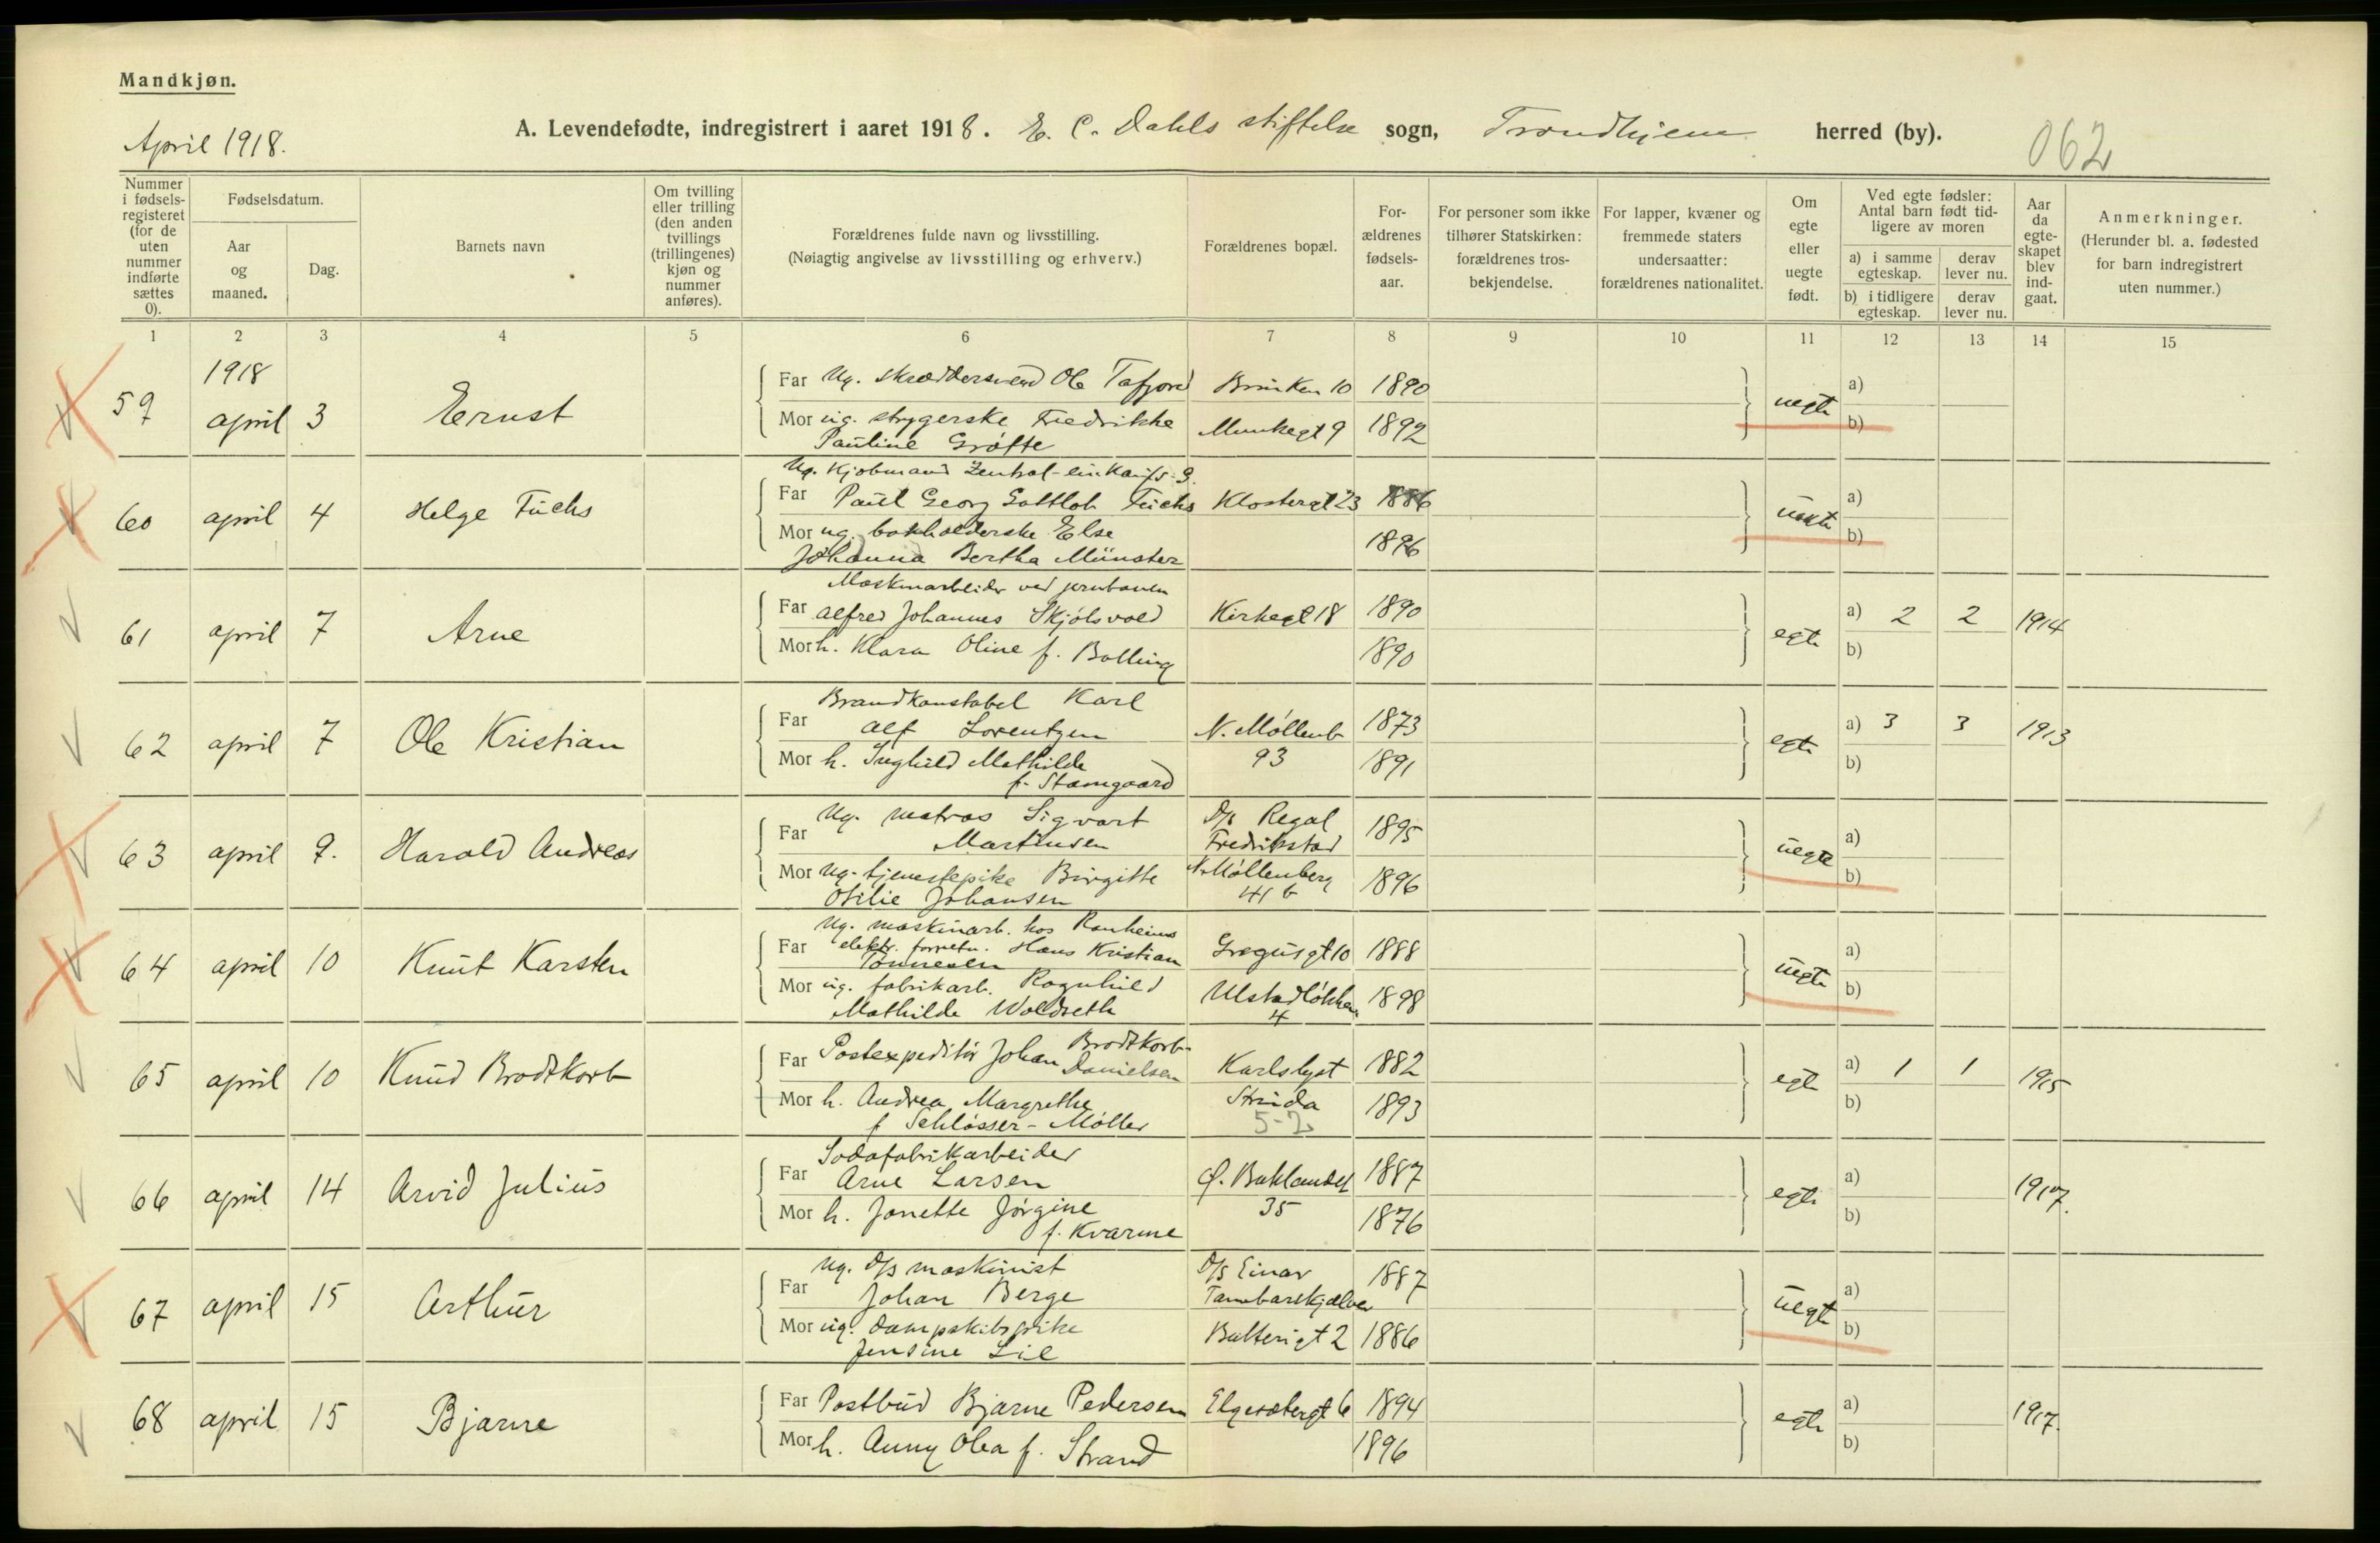 Mandkjøn.
April 1918.
A. Levendefødte, indregistrert i aaret 1918. E. C. Dahls stiftelse sogn, Trondhjem herred (by).
062
Nummer i fødselsregisteret (for de uten nummer indførte sættes 0).
Fødselsdatum.
Aar og maaned.
Dag.
Barnets navn
Om tvilling eller trilling (den anden tvillings (trillingenes) kjøn og nummer anføres).
Forældrenes fulde navn og livsstilling.
(Nøiagtig angivelse av livsstilling og erhverv.)
Forældrenes bopæl.
Forældrenes fødselsaar.
For personer som ikke tilhører Statskirken: forældrenes trosbekjendelse.
For lapper, kvæner og fremmede staters undersaatter: forældrenes nationalitet.
Om egte eller uegte født.
Ved egte fødsler: Antal barn født tidligere av moren
a) i samme egteskap. derav lever nu.
b) i tidligere egteskap. derav lever nu.
Aar da egteskapet blev indgaat.
Anmerkninger.
(Herunder bl. a. fødested for barn indregistrert uten nummer.)
1 2 3 4 5 6 7 8 9 10 11 12 13 14 15
1918
59 april 3 Ernst
Far Ug. skræddersvend Ole Tafjord Brinken 10 1890
Mor ug. strygerske Fredrikke Munkegt 9 1892
Pauline Grøtte
uegte a) b)
Ug. Kjøbmand Zentral-einkaufs-G.
60 april 4 Helge Fuchs
Far Paul Georg Gottlob Fuchs Klostergt 23 1886
Mor ug. bokholderske Else 1896
Johanna Bertha Münster
uekte a) b)
Maskinarbeider ved jernbanen
61 april 7 Arne
Far Alfred Johannes Skjølsvold Kirkegt 18 1890
Mor h. Klara Oline f. Balling 1890
egte a) 2 2 1914
b)
Brandkonstabel Karl
62 april 7 Ole Kristian
Far Alf Lorentzen N. Møllenb 1873
Mor h. Inghild Mathilde 93 1891
f. Stamgaard
egte a) 3 3 1913
b)
Ug. matros Sigvart D/s Regal 1895
63 april 9. Harald Andreas
Far Martinsen Fredrikstad
Mor ug. tjenestepike Birgitte N. Møllenberg 1896
Otilie Johansen 41 b
uegte a) b)
Ug. maskinarb. hos Ranheims
64 april 10 Knut Karsten
Far elektr. forretn. Hans Kristian Gregusgt 10 1888
Tønnesen
Mor ug. fabrikarb. Ragnhild Ulstadløkken 1898
Mathilde Woldseth 4
uegte a) b)
65 april 10 Knud Brodtkorb
Far Postexpeditør Johan Brodtkorb Danielsen Karlslyst 1882
Mor h. Andrea Margrethe Strinda 1893
f. Schløsser-Møller 5-2
egte a) 1 1 1915
b)
Sodafabrikarbeider
66 april 14 Arvid Julius
Far Arne Larsen Ø. Baklandet 1887
Mor h. Janette Jørgine 35 1876
f. Kvarme
egte a) 1917.
b)
Ug. D/s maskinist D/s Einar 1887
67 april 15 Arthur
Far Johan Berge Tambarskjælver
Mor ug. dampskibspike Batterigt 2 1886
Jensine Lil
uegte a) b)
68 april 15 Bjarne
Far Postbud Bjarne Pedersen Elgesætergt 6 1894
Mor h. Anny Olea f. Strand 1896
egte a) 1917.
b)